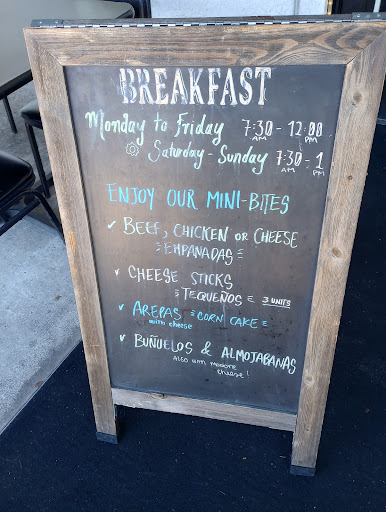 BREAKFAST
Monday to Friday 7:30 AM - 12:00 PM
Saturday - Sunday 7:30 AM - 1 PM
ENJOY OUR MINI-BITES
✓ BEEF, CHICKEN OR CHEESE
EMPANADAS
✓ CHEESE STICKS
TEQUEÑOS 3 UNITS
✓ AREPAS CORN CAKE
with cheese
✓ BUÑUELOS & ALMOJABANAS
ALSO WITH MORE
CHEESE!